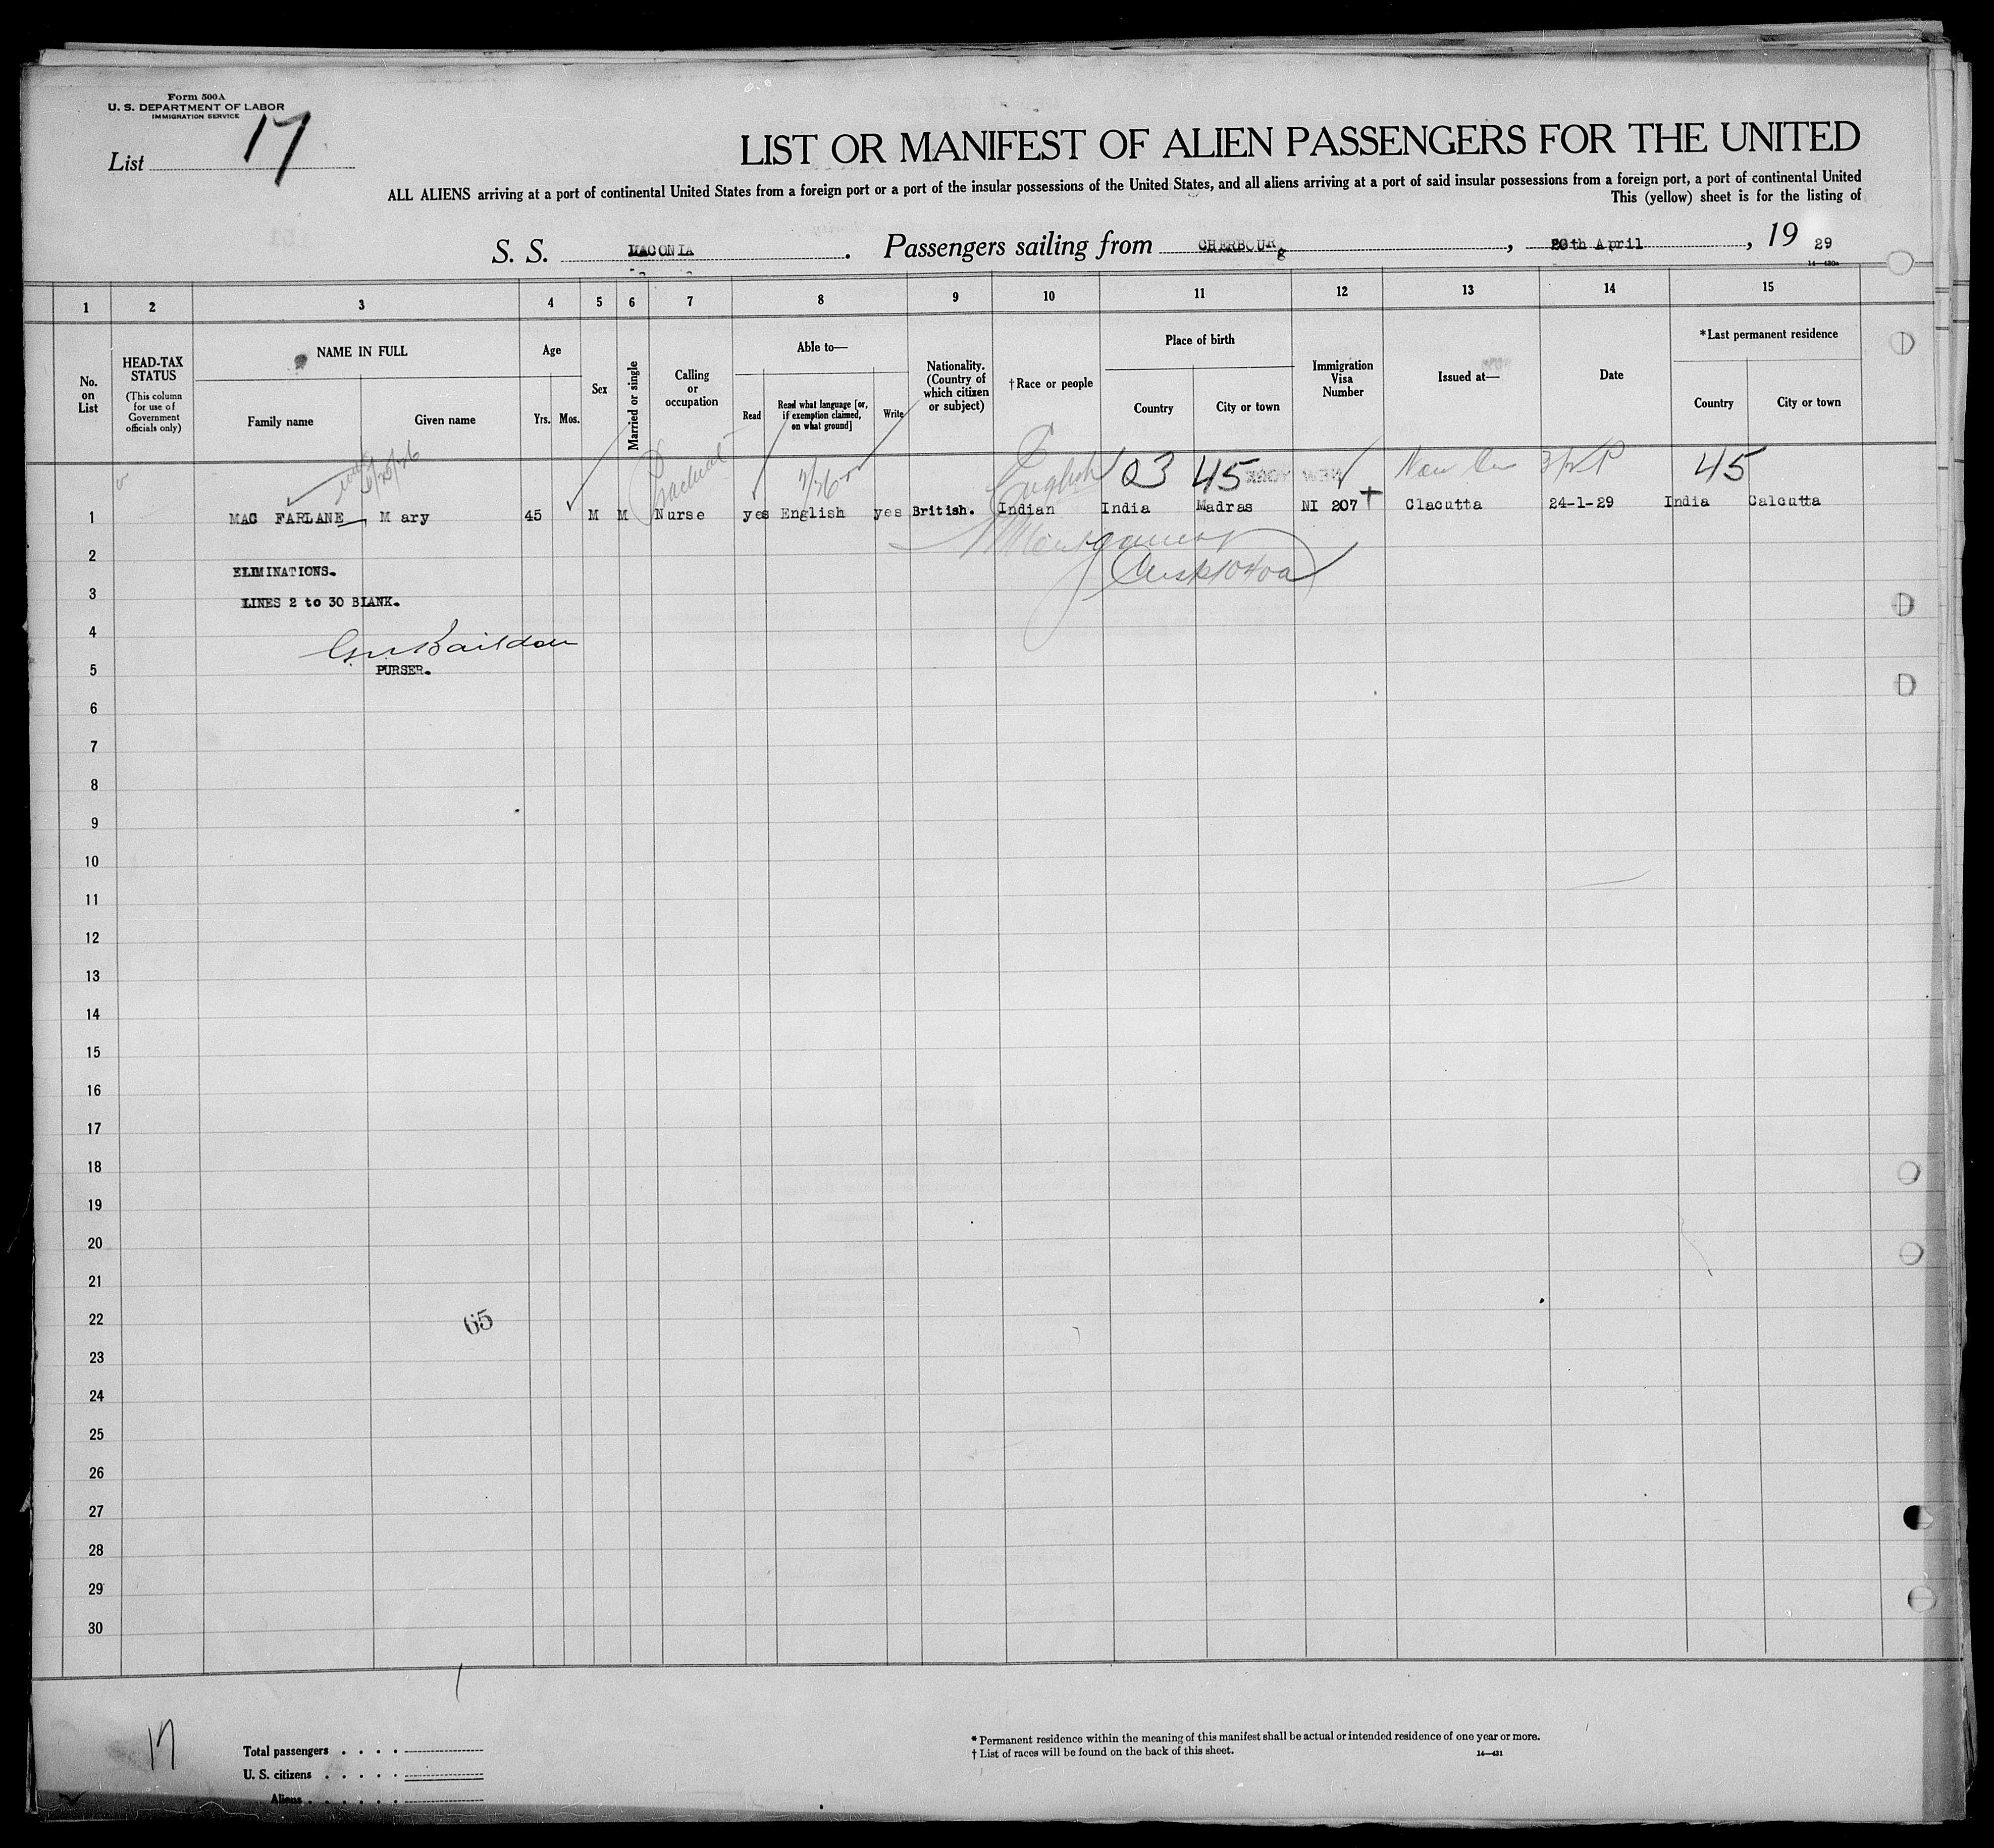 Form 500A
U. S. DEPARTMENT OF LABOR
IMMIGRATION SERVICE
List 17
LIST OR MANIFEST OF ALIEN PASSENGERS FOR THE UNITED
ALL ALIENS arriving at a port of continental United States from a foreign port or a port of the insular possessions of the United States, and all aliens arriving at a port of said insular possessions from a foreign port, a port of continental United
This (yellow) sheet is for the listing of
S. S. . Passengers sailing from CHERBOURg , 20th April , 19 29
14—430a
1 2 3 4 5 6 7 8 9 10 11 12 13 14 15
No. on List
HEAD-TAX STATUS
(This column for use of Government officials only)
NAME IN FULL
Family name Given name
Age
Yrs. Mos.
Sex
Married or single
Calling or occupation
Able to—
Read
Read what language [or, if exemption claimed, on what ground]
Write
Nationality. (Country of which citizen or subject)
†Race or people
Place of birth
Country City or town
Immigration Visa Number
Issued at—
Date
*Last permanent residence
Country City or town
English 03 45 45
1 MAC FARLANE M ary 45 M M Nurse yes English yes British. Indian India Madras NI 207 Clacutta 24-1-29 India Calcutta
2
ELIMINATIONS.
3
LINES 2 to 30 BLANK.
4
5 PURSER.
6
7
8
9
10
11
12
13
14
15
16
17
18
19
20
21
22
65
23
24
25
26
27
28
29
30
17
Total passengers . . . .
U. S. citizens . . . . .
Aliens . . . . . .
* Permanent residence within the meaning of this manifest shall be actual or intended residence of one year or more.
† List of races will be found on the back of this sheet.
14—431